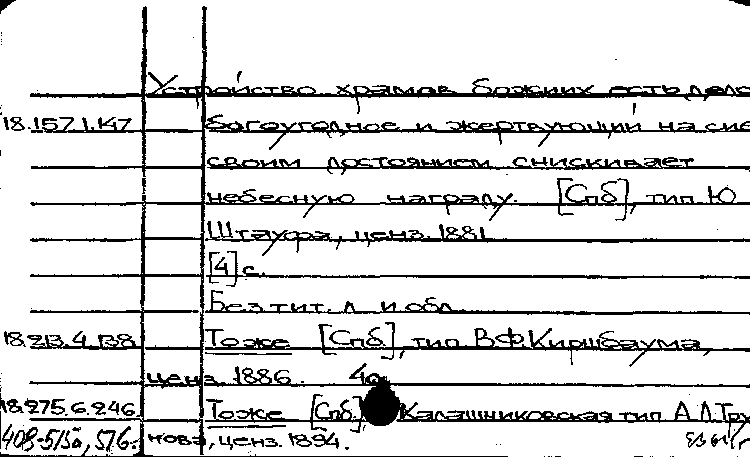 Устройство храмов божиих есть дело
18.157.1.147 богоугодное и жертвующий на сие
своим достоянием снискивает
небесную награду. [Спб], тип. Ю.
Штауфа, ценз. 1881.
[4] с.
Без тит. л. и обл.
18.213.4.138 То же [Спб.], тип. В.Ф. Киршбаума,
ценз. 1886. 4с.
18.275.6.246 То же [Спб.] Калашниковская тип. А.Л. Тру
нова, ценз. 1894.